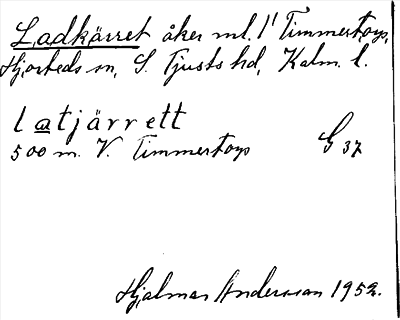 Ladkärret åker ml. 1¹ Timmertorp,
Hjorteds sn, S. Tjusts hd, Kalm. l.
latjärrett
500 m. V. Timmertorp G 37
Hjalmar Andersson 1952.